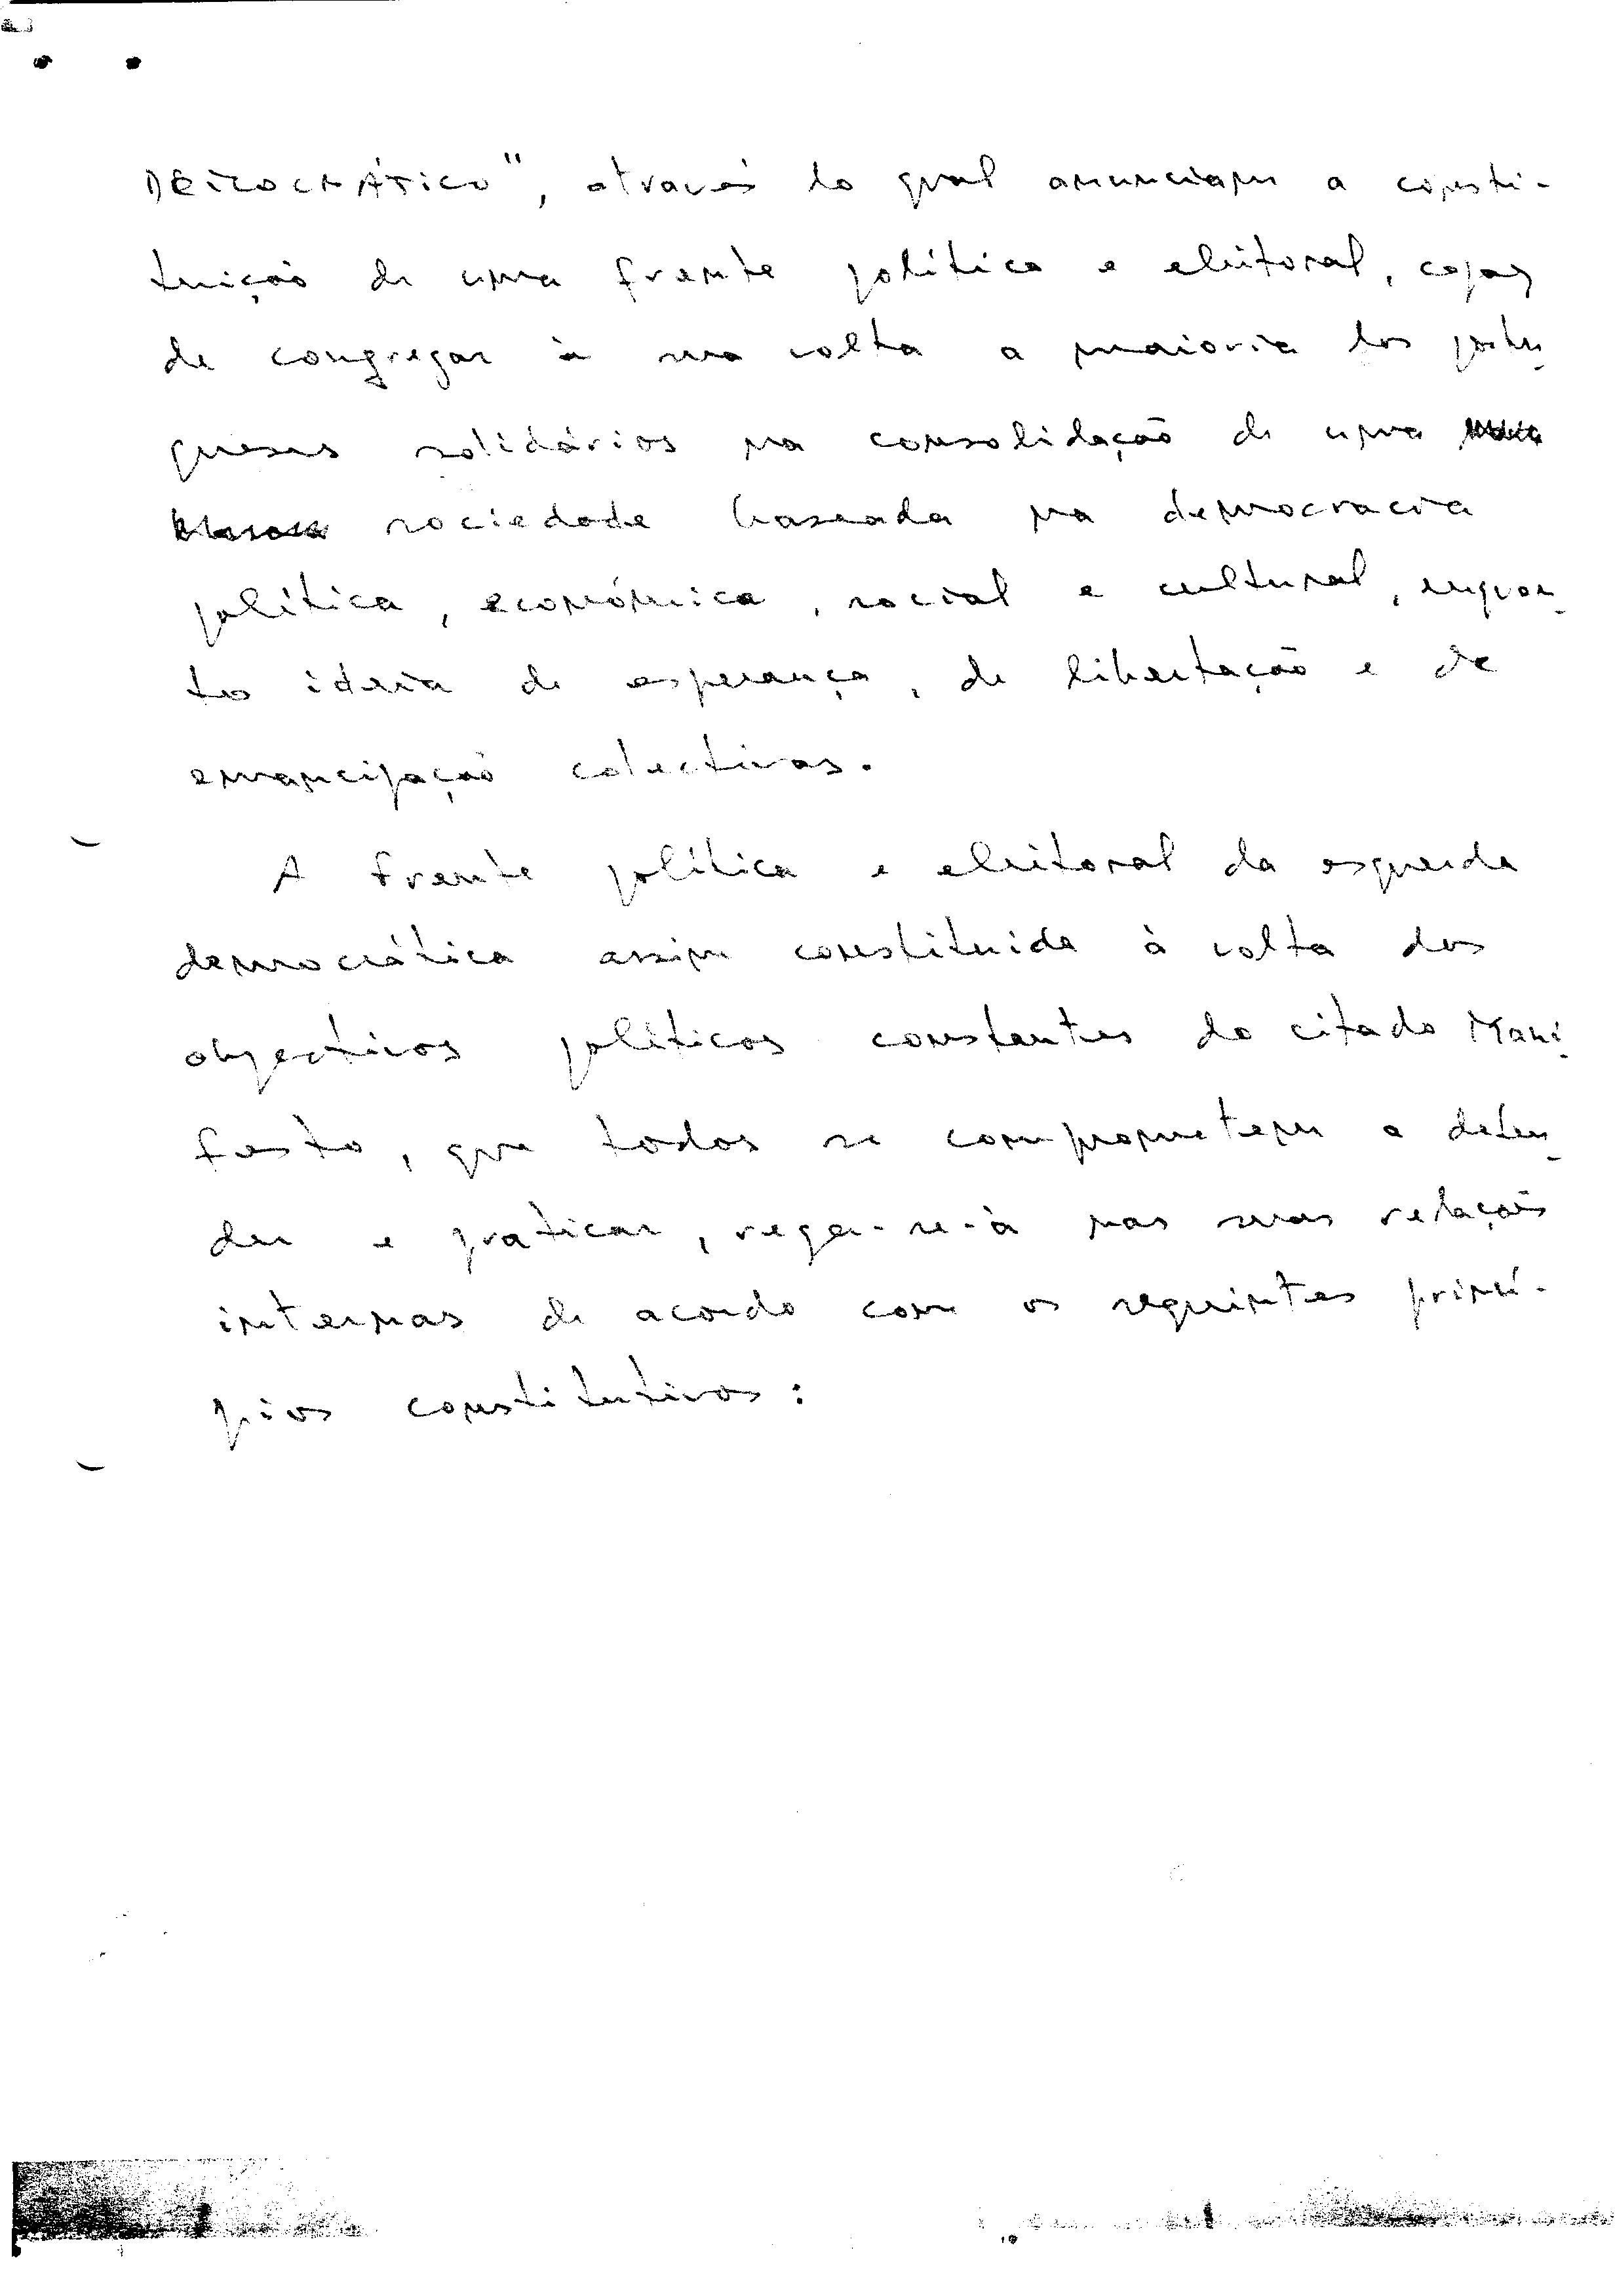 DEMOCRÁTICO", através do qual anunciam a consti-
tuição de uma frente política e eleitoral, capaz
de congregar à sua volta a maioria dos portu-
gueses solidários na consolidação de uma
sociedade baseada na democracia
política, económica, social e cultural, enquan-
to ideia de esperança, de libertação e de
emancipação colectivas.
A frente política e eleitoral da esquerda
democrática assim constituída à volta dos
objectivos políticos constantes do citado Mani-
festo, que todos se comprometem a defen-
der e praticar, reger-se-à nas suas relações
internas de acordo com os seguintes princí-
pios constitutivos: